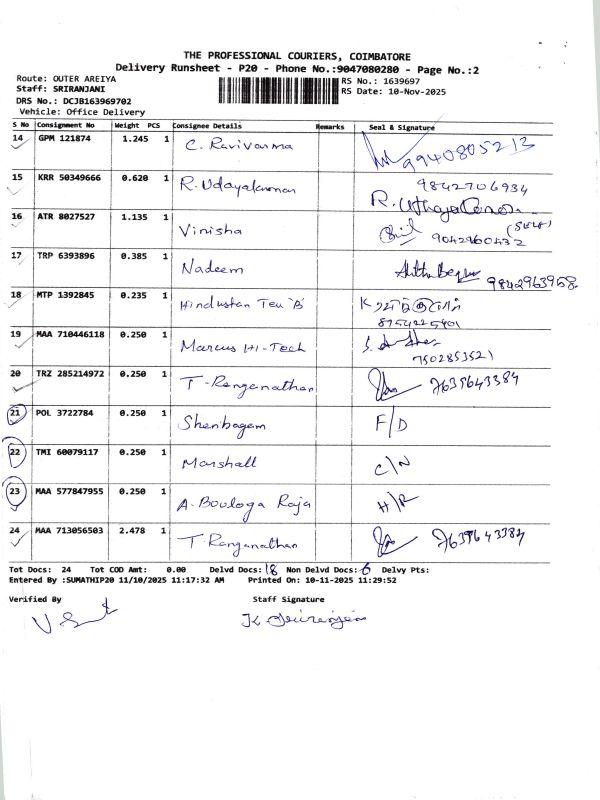 THE PROFESSIONAL COURIERS, COIMBATORE
Delivery Runsheet - P20 - Phone No.:9047080280 - Page No.:2
Route: OUTER AREIYA RS No.: 1639697
Staff: SRIRANJANI RS Date: 10-Nov-2025
DRS No.: DCJB163969702
Vehicle: Office Delivery
S No Consignment No Weight PCS Consignee Details Remarks Seal & Signature
14 GPM 121874 1.245 1 C. Ravivarma 9940805213
15 KRR 50349666 0.620 1 R. Udayakumar 9842706934
16 ATR 8027527 1.135 1 Vinisha (Self) 9042960432
17 TRP 6393896 0.385 1 Nadeem 9842963958
18 MTP 1392845 0.235 1 Hindustan Teu 'B' 8754225901
19 MAA 710446118 0.250 1 Marcus Hi-Tech 7502853521
20 TRZ 285214972 0.250 1 T-Ranganathan 7639643384
21 POL 3722784 0.250 1 Shenbagam F/D
22 TMI 60079117 0.250 1 Marshall C/N
23 MAA 577847955 0.250 1 A. Bouloga Raja H/R
24 MAA 713056503 2.478 1 T-Ranganathan 7639643384
Tot Docs: 24 Tot COD Amt: 0.00 Delvd Docs: 18 Non Delvd Docs: 6 Delvy Pts:
Entered By :SUMATHIP20 11/10/2025 11:17:32 AM Printed On: 10-11-2025 11:29:52
Verified By Staff Signature